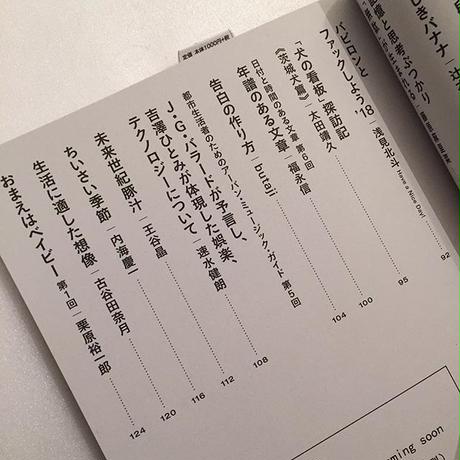 定価 本体1000円+税
しきバナナ｜辻
記憶と思考ぶつかり
バビロンと
ファックしよう '18｜浅見北斗(Have a Nice Day!) 92
「犬の看板」探訪記
《茨城犬篇》｜太田靖久 95
日付と時間のある文章 第6回
年譜のある文章｜福永信 100
告白の作り方｜butaji 104
都市生活者のためのアーバン・ミュージック・ガイド 第5回
J・G・バラードが予言し、
吉澤ひとみが体現した娯楽、
テクノロジーについて｜速水健朗 108
未来世紀豚汁｜王谷晶 112
ちいさい季節｜内海慶一 116
生活に適した想像｜古谷田奈月 120
おまえはベイビー 第1回｜栗原裕一郎 124
ming soon